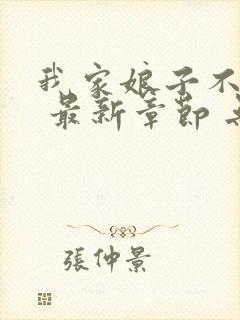 我家娘子不
最新章節
張仲景